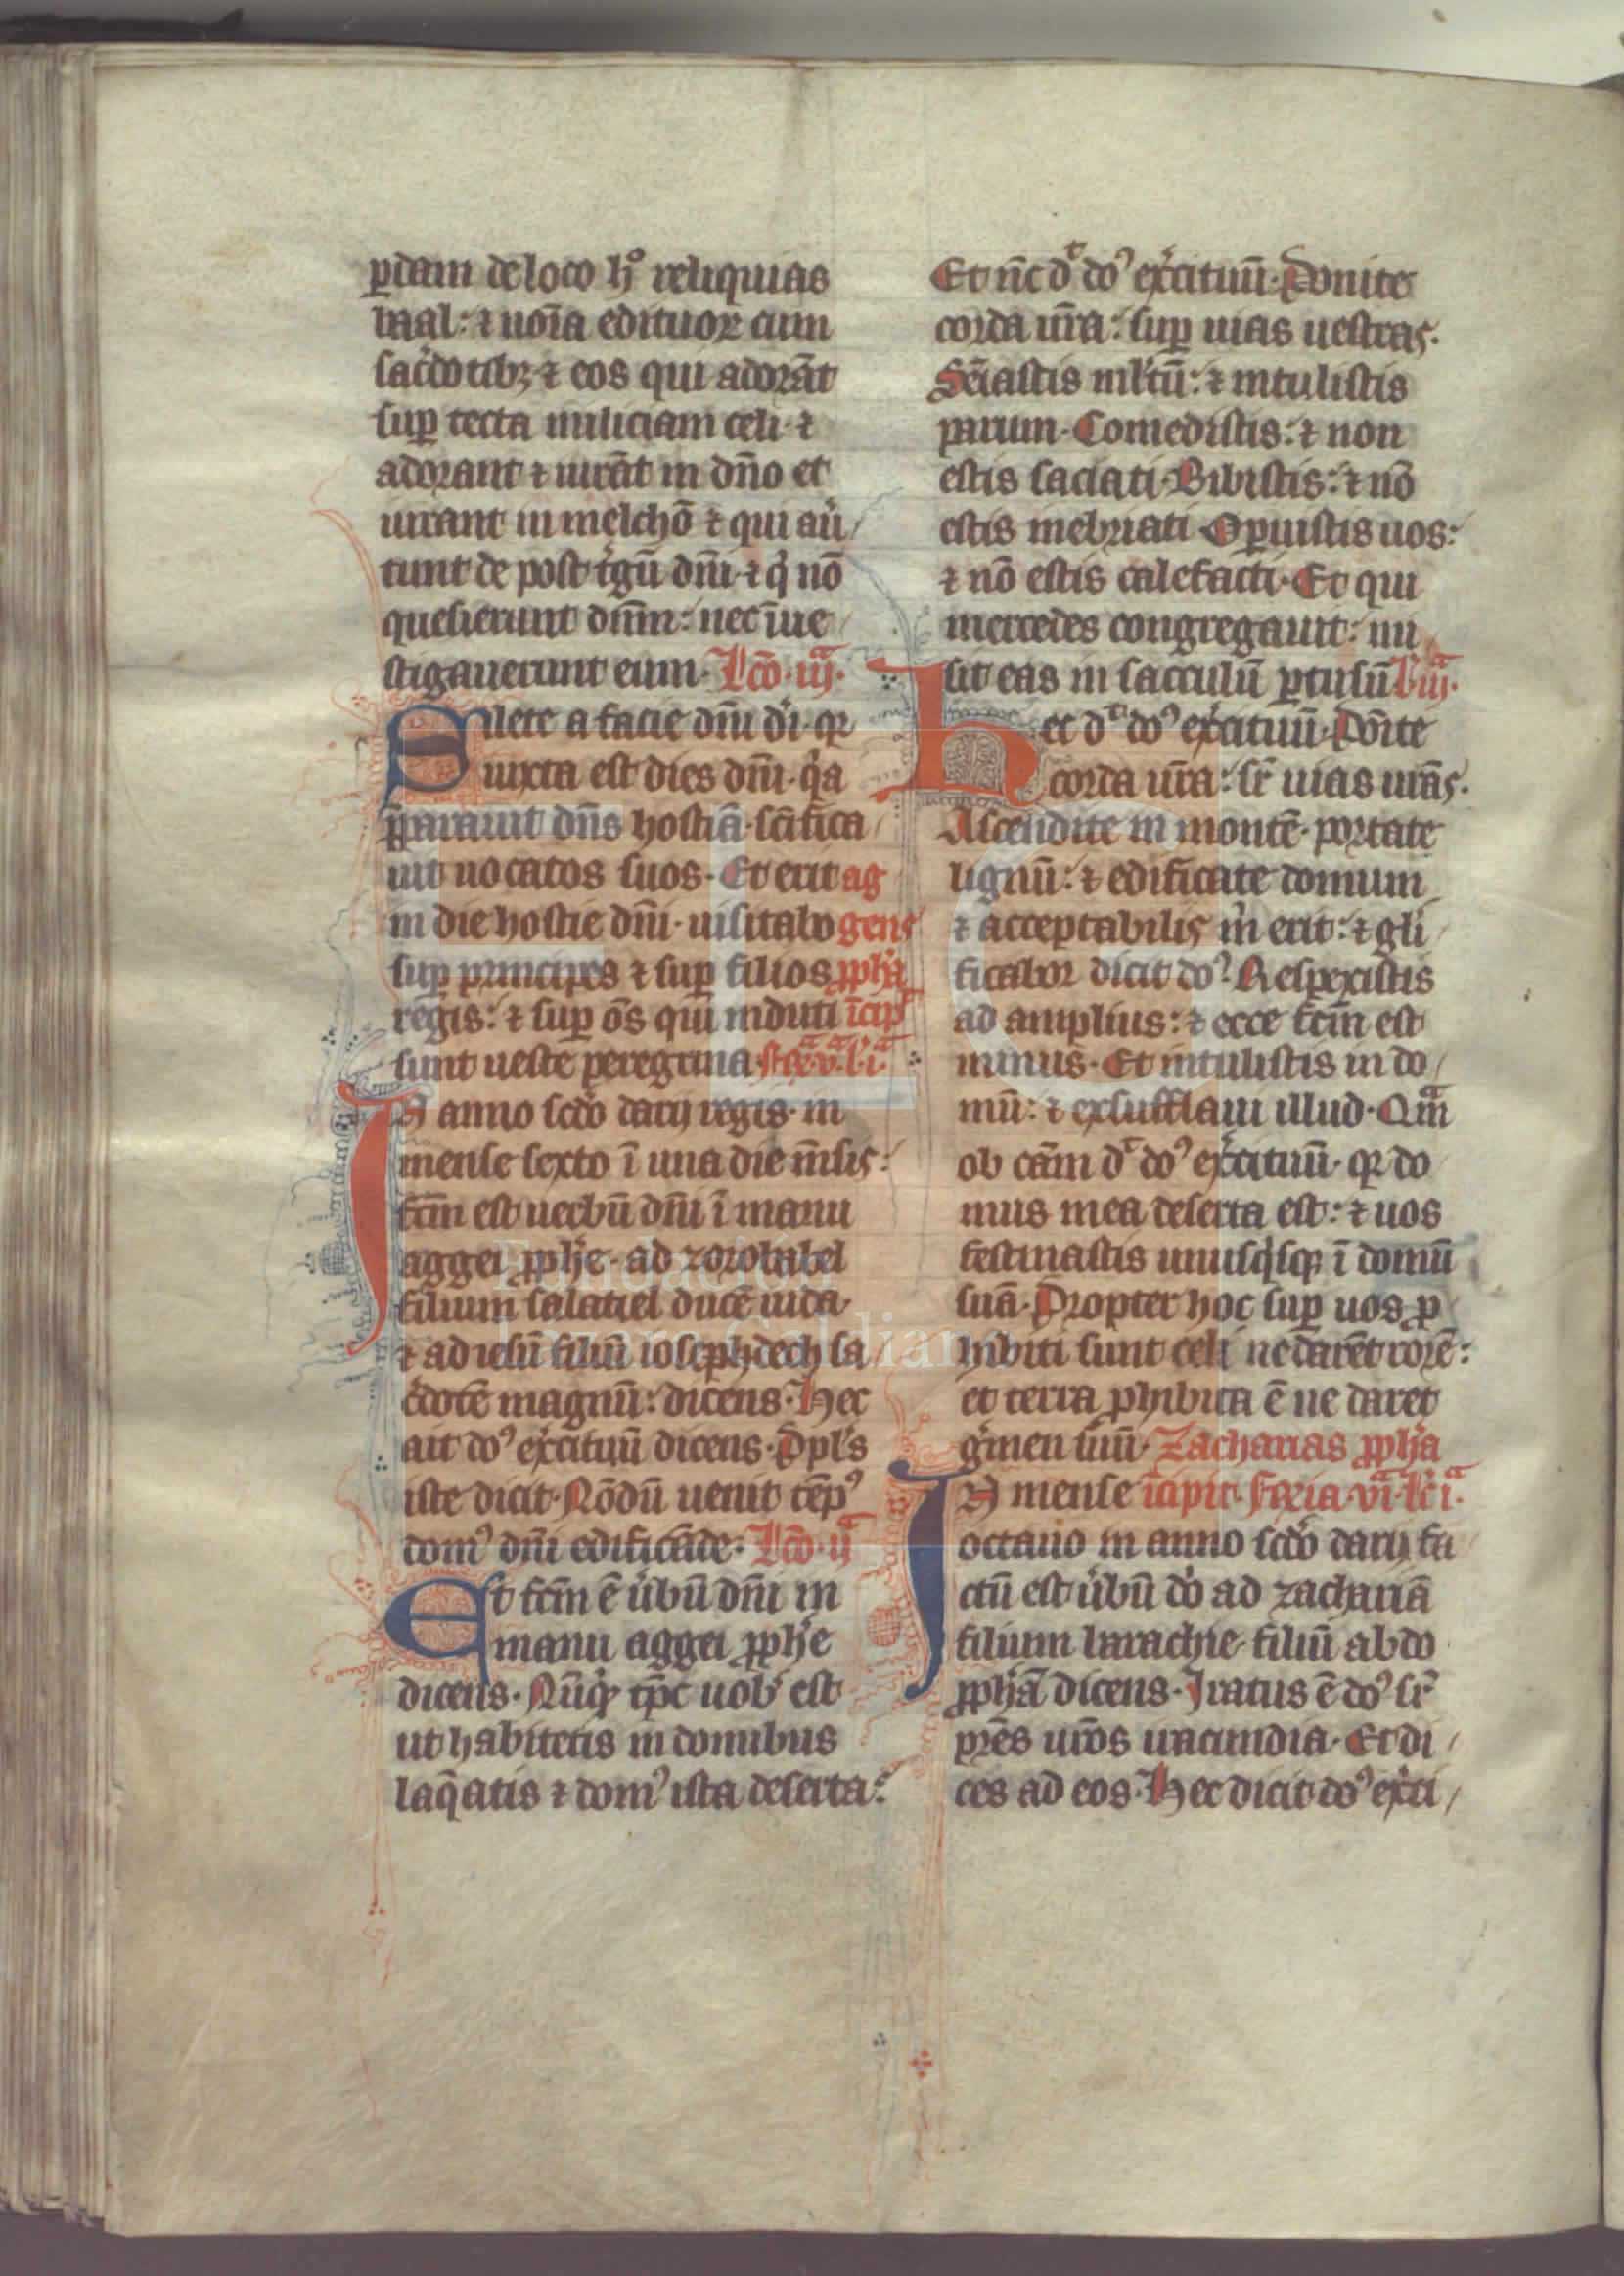 ꝑdam de loco hͦ reliquias
baal: ⁊ noīa edituoꝝ cum
sac̓dotibꝫ ⁊ eos qui adorāt
suꝑ tecta miliciam celi· ⁊
adorant ⁊ iurāt in dn̄o et
iurant in melchō ⁊ qui au̓/
tunt de post t̓gū dn̄i· ⁊ q̓ nō
quesierunt dn̄m: nec īue
stigauerunt eum· Lc̄o·iijᵃ·
Silete a facie dn̄i dī· qꝛ
iuxta est dies dn̄i· q̓a
p̄parauit dn̄s hostiā· sc̄ifica/
uit uocatos suos· Et erit ag
in die hostie dn̄i· uisitabo geus
suꝑ principes ⁊ suꝑ filios ꝓph̓a
regis: ⁊ suꝑ ōs qui induti īcip̓
sunt ueste peregrina· fr̄ vᵃ·l·iᵃ·
IN anno sc̄do darij regis· in
mense sexto ī una die m̄sis:
fc̄m est uerbū dn̄i ī manu
aggei ꝓph̓e· ad zorobabel
filium salatiel ducē iuda·
⁊ ad iesū filiū iosephdech sa/
c̓dotē magnū: dicens· Hec
ait do᷒ ex̓cituū dicens· Ppl̓s
iste dicit· Nōdū uenit tēp᷒
dom᷒ dn̄i edificāde: Lc̄o·ijᵃ
Et fc̄m ē u̓bū dn̄i in
manu aggei ꝓph̓e
dicens· Nūq̓d tp̄c uob̓ est
ut habitetis in domibus
laq̄atis ⁊ dom᷒ ista deserta:
Et nc̄ dᵗ do᷒ ex̓cituū· Ponite
corda ur̄a: suꝑ uias uestras·
Sēiastis ml̓tū: ⁊ intulistis
parum· Comedistis: ⁊ non
estis saciati· Bibistis: ⁊ nō
estis inebriati· Oꝑuistis uos:
⁊ nō estis calefacti· Et qui
mercedes congregauit: mi/
sit eas in sacculū ꝑtusū l·iijᵃ·
hec dᵗ do᷒ ex̓cituū· Pōite
corda ur̄a: sr̄ uias ur̄as·
Ascendite in montē· portate
lignū: ⁊ edificate domum
⁊ acceptabilis m̓ erit: ⁊ gl̓i/
ficabor dicit do᷒· Respexistis
ad amplius: ⁊ ecce fc̄m est
minus· Et intulistis in do/
mū: ⁊ exsufflaui illud· Qm̄
ob cām dᵗ do᷒ ex̓cituū· qꝛ do
mus mea deserta est: ⁊ uos
festinastis unusq̓sqꝫ ī domū
suā· Propter hoc suꝑ uos ꝓ
hibiti sunt celi ne darēt rorē:
et terra ꝓhibita ē ne daret
g̓men suū· Zacharias ꝓph̓a
IN mense īcipit· feria·viᵃ·lc̄ iᵃ·
octauo in anno sc̄do darij fa
ctū est u̓bū do᷒ ad zachariā
filium barachie· filiū abdo
ꝓph̄ā dicens· Iratus ē do᷒ sr̄
pr̄es ur̄os iracundia· Et di/
ces ad eos· Hec dicit do᷒ ex̓ci/
Fundación